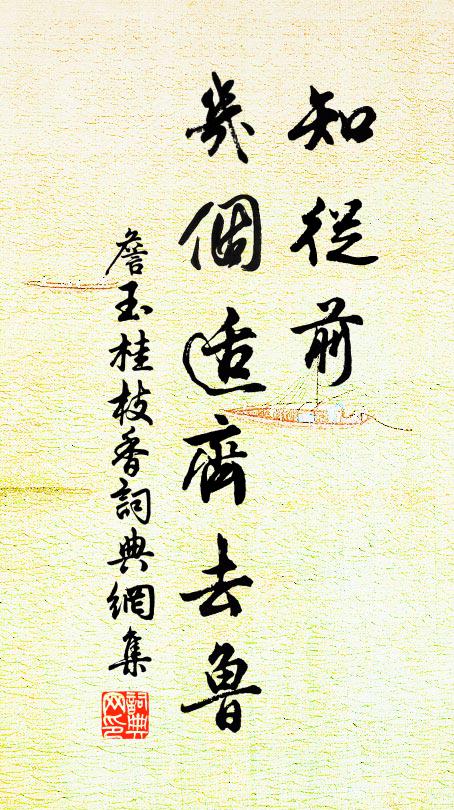 知從前
幾個適齊去魯
詹玉桂枝香詞典網集
詞典网印